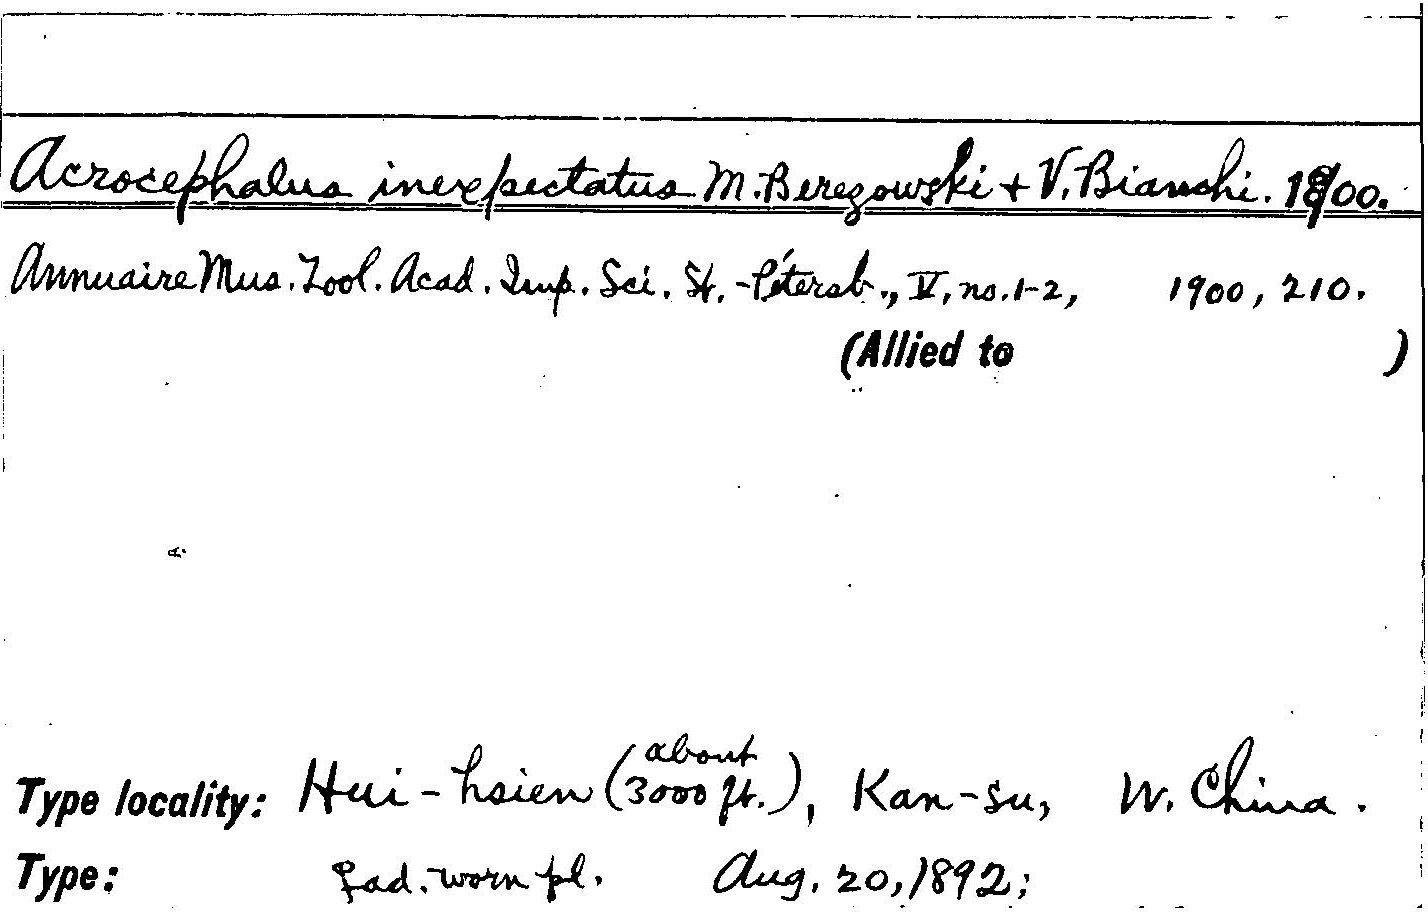 Acrocephalus inexpectatus M. Berezowski + V. Bianchi. 1900.
Annuaire Mus. Zool. Acad. Imp. Sci. St.-Pétersb., V, no. 1-2, 1900, 210.
(Allied to )
Type locality: Hui-hsien (about 3000 ft.), Kan-su, W. China.
Type: ♀ ad. worn pl. Aug. 20, 1892;